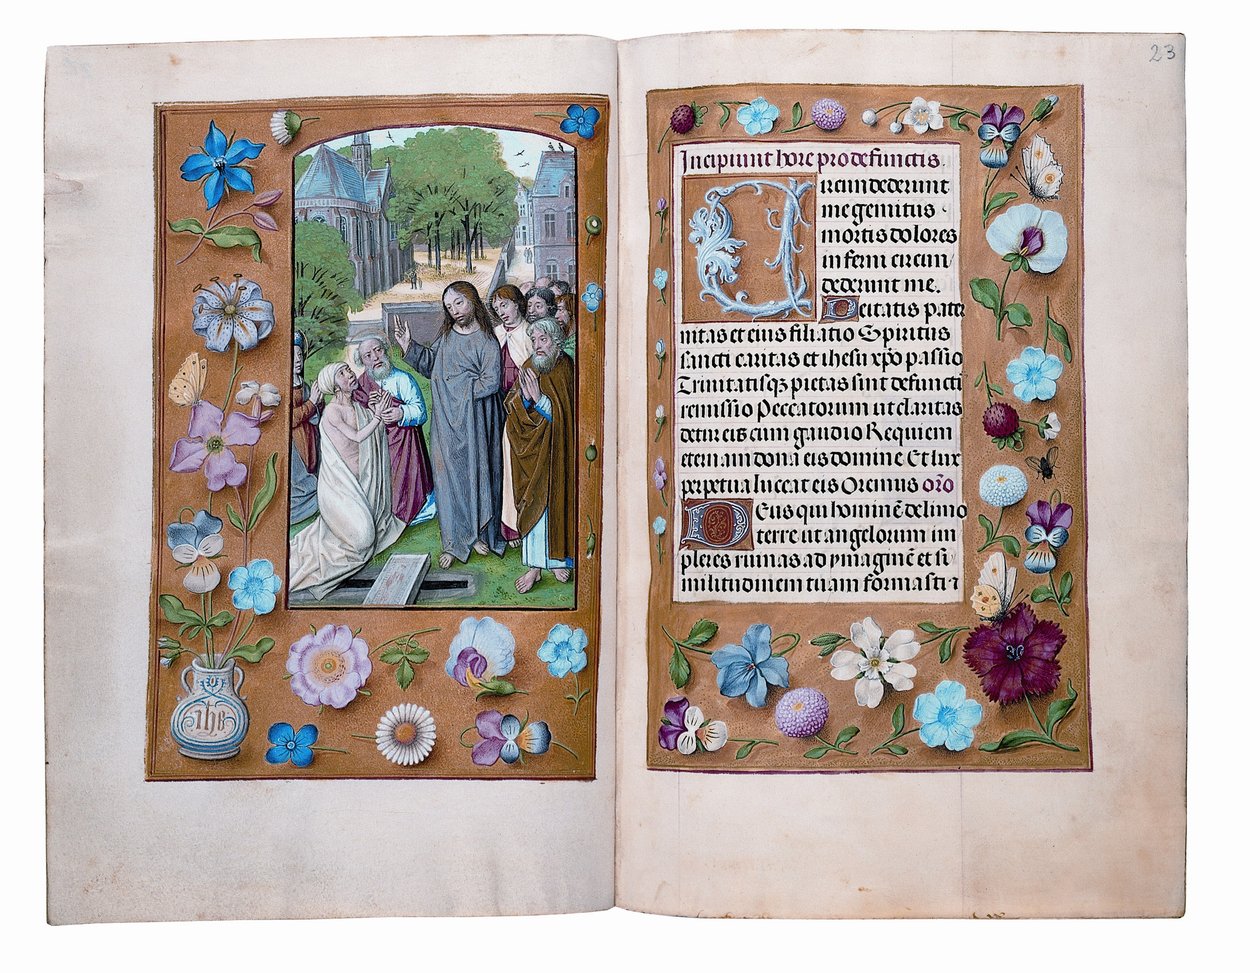 ihs
23
Incipiunt hore pro defunctis.
Circumdederunt
me gemitus
mortis dolores
inferni circum
dederunt me.
Deitatis pater
nitas et eius filiatio Spiritus
sancti caritas et ihesu xpo passio
Trinitatisqz pietas sint defuncti
remissio Peccatorum ut claritas
detur eis cum gaudio Requiem
eternam dona eis domine Et lux
perpetua luceat eis Oremus oro
Deus qui homine delimo
terre ut angelorum im
pleres ruinas ad ymagine et si
militudinem tuam formasti